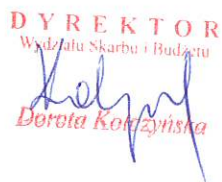 DYREKTOR
Wydziału Skarbu i Budżetu
Dorota Kołdzyńska